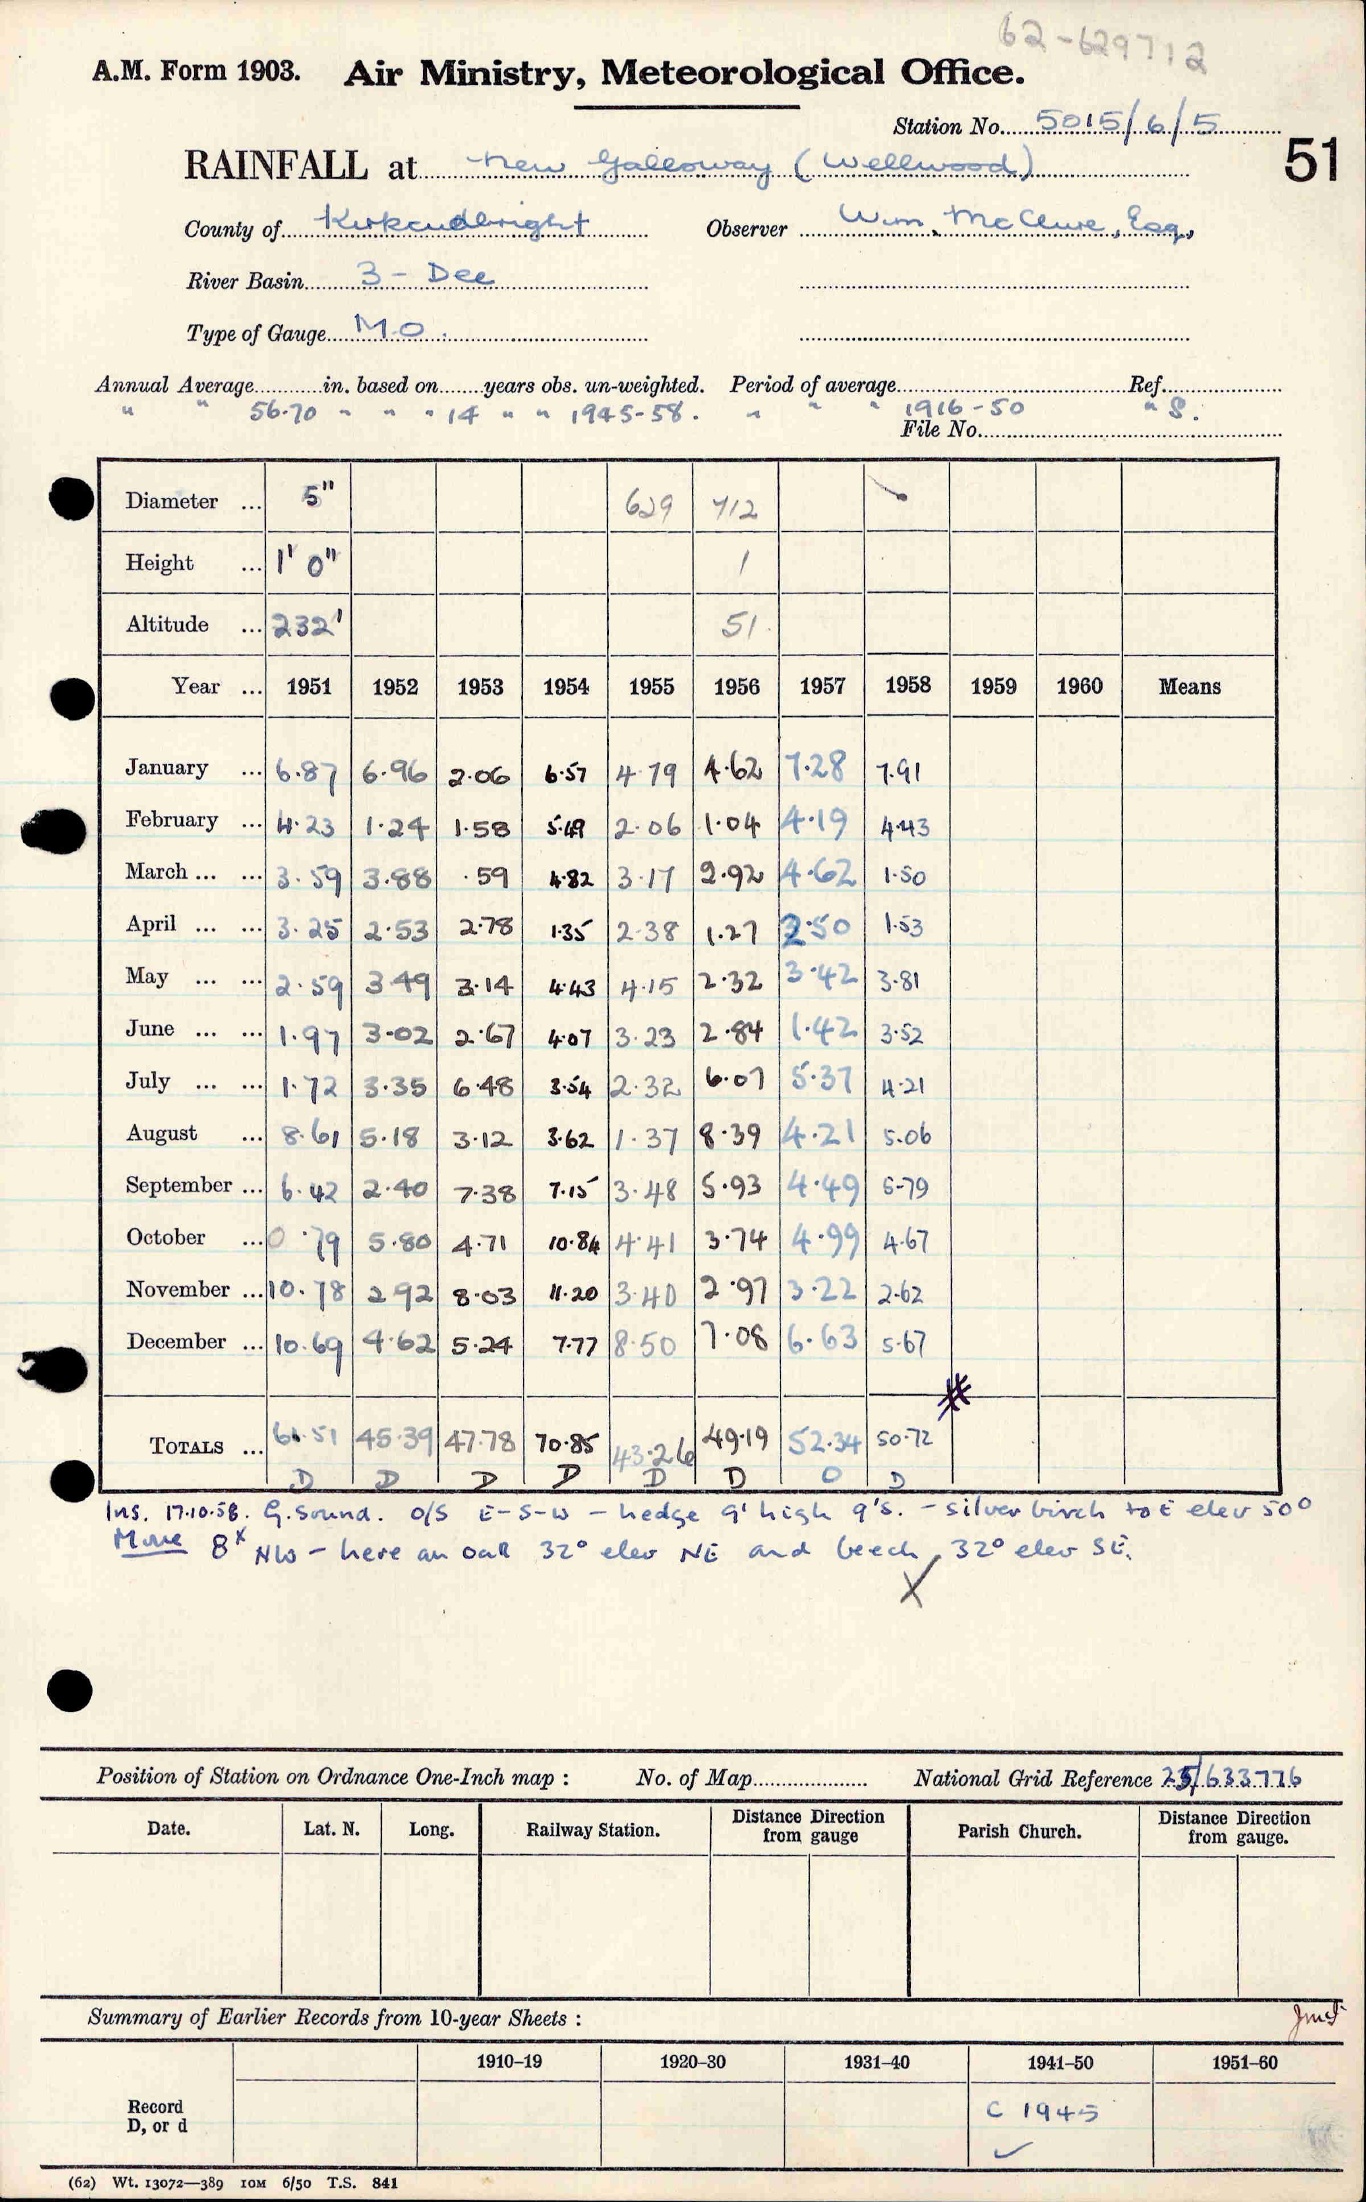 62-629712
A.M. Form 1903. Air Ministry, Meteorological Office.
Station No. 5015/6/5
51
RAINFALL at New Galloway (Wellwood)
County of Kirkcudbright Observer Wm. McClure, Esq.,
River Basin 3 - Dee
Type of Gauge M.O.
Annual Average in. based on years obs. un-weighted. Period of average Ref.
" " 56.70 " " " 14 " " 1945-58. " " " 1916-50 " S.
File No.
Diameter ... 5" 629 712
Height ... 1' 0" 1
Altitude ... 232' 51
Year ... 1951 1952 1953 1954 1955 1956 1957 1958 1959 1960 Means
January ... 6.87 6.96 2.06 6.57 4.79 4.62 7.28 7.91
February ... 4.23 1.24 1.58 5.49 2.06 1.04 4.19 4.43
March ... ... 3.59 3.88 .59 4.82 3.17 2.92 4.62 1.50
April ... ... 3.25 2.53 2.78 1.35 2.38 1.27 2.50 1.53
May ... ... 2.59 3.49 3.14 4.43 4.15 2.32 3.42 3.81
June ... ... 1.97 3.02 2.67 4.07 3.23 2.84 1.42 3.52
July ... ... 1.72 3.35 6.48 3.54 2.32 6.07 5.37 4.21
August ... 8.61 5.18 3.12 3.62 1.37 8.39 4.21 5.06
September ... 6.42 2.40 7.38 7.15 3.48 5.93 4.49 5.79
October ... 0.79 5.80 4.71 10.84 4.41 3.74 4.99 4.67
November ... 10.78 2.92 8.03 11.20 3.40 2.97 3.22 2.62
December ... 10.69 4.62 5.24 7.77 8.50 7.08 6.63 5.67
TOTALS ... 61.51 45.39 47.78 70.85 43.26 49.19 52.34 50.72
D D D D D D D D
Ins. 17.10.58. G. Sound. O/S E-S-W - hedge 9' high 9's. - silver birch to E elev 50°
Move 8x NW - here an oak 32° elev NE and beech 32° elev SE.
Position of Station on Ordnance One-Inch map : No. of Map National Grid Reference 25/633776
Date. Lat. N. Long. Railway Station. Distance Direction from gauge Parish Church. Distance Direction from gauge.
Summary of Earlier Records from 10-year Sheets :
1910-19 1920-30 1931-40 1941-50 1951-60
Record C 1945
D, or d ✓
(62) Wt. 13072—389 10M 6/50 T.S. 841